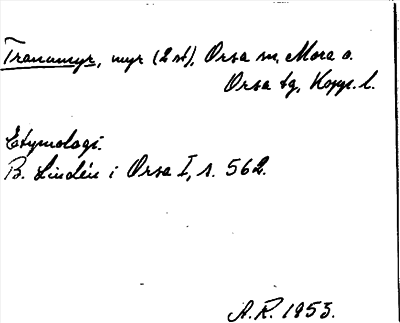 Tranumyr, myr (2 st), Orsa sn, Mora o.
Orsa tg, Kopp. l.
Etymologi.
B. Lindén i Orsa I, s. 562.
A.R. 1953.